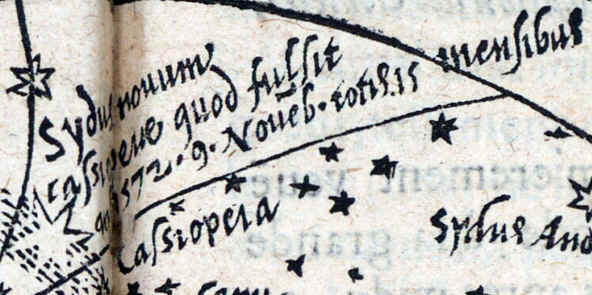 Sydus novum
Cassiopeae quod fulsit
1572. 9. Novēb. totis 15 mensibus
Cassiopeia
Sydus And